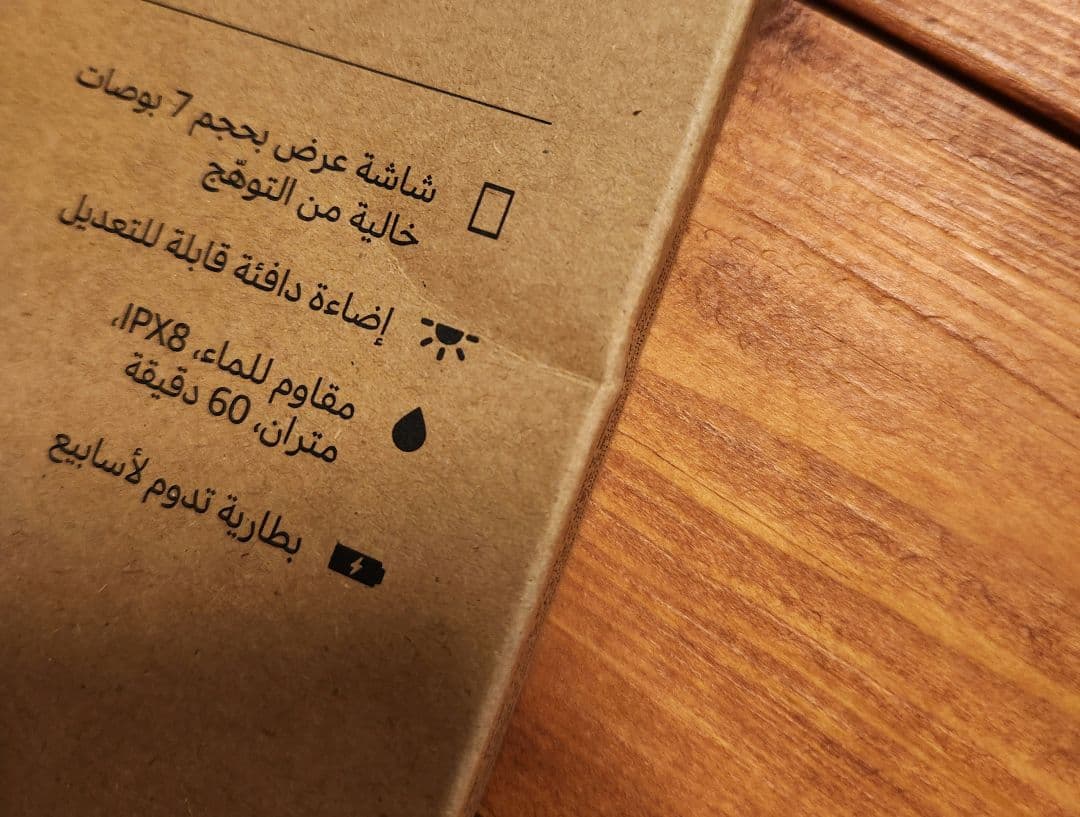 شاشة عرض بحجم 7 بوصات
خالية من التوهّج
إضاءة دافئة قابلة للتعديل
مقاوم للماء، IPX8،
متران، 60 دقيقة
بطارية تدوم لأسابيع